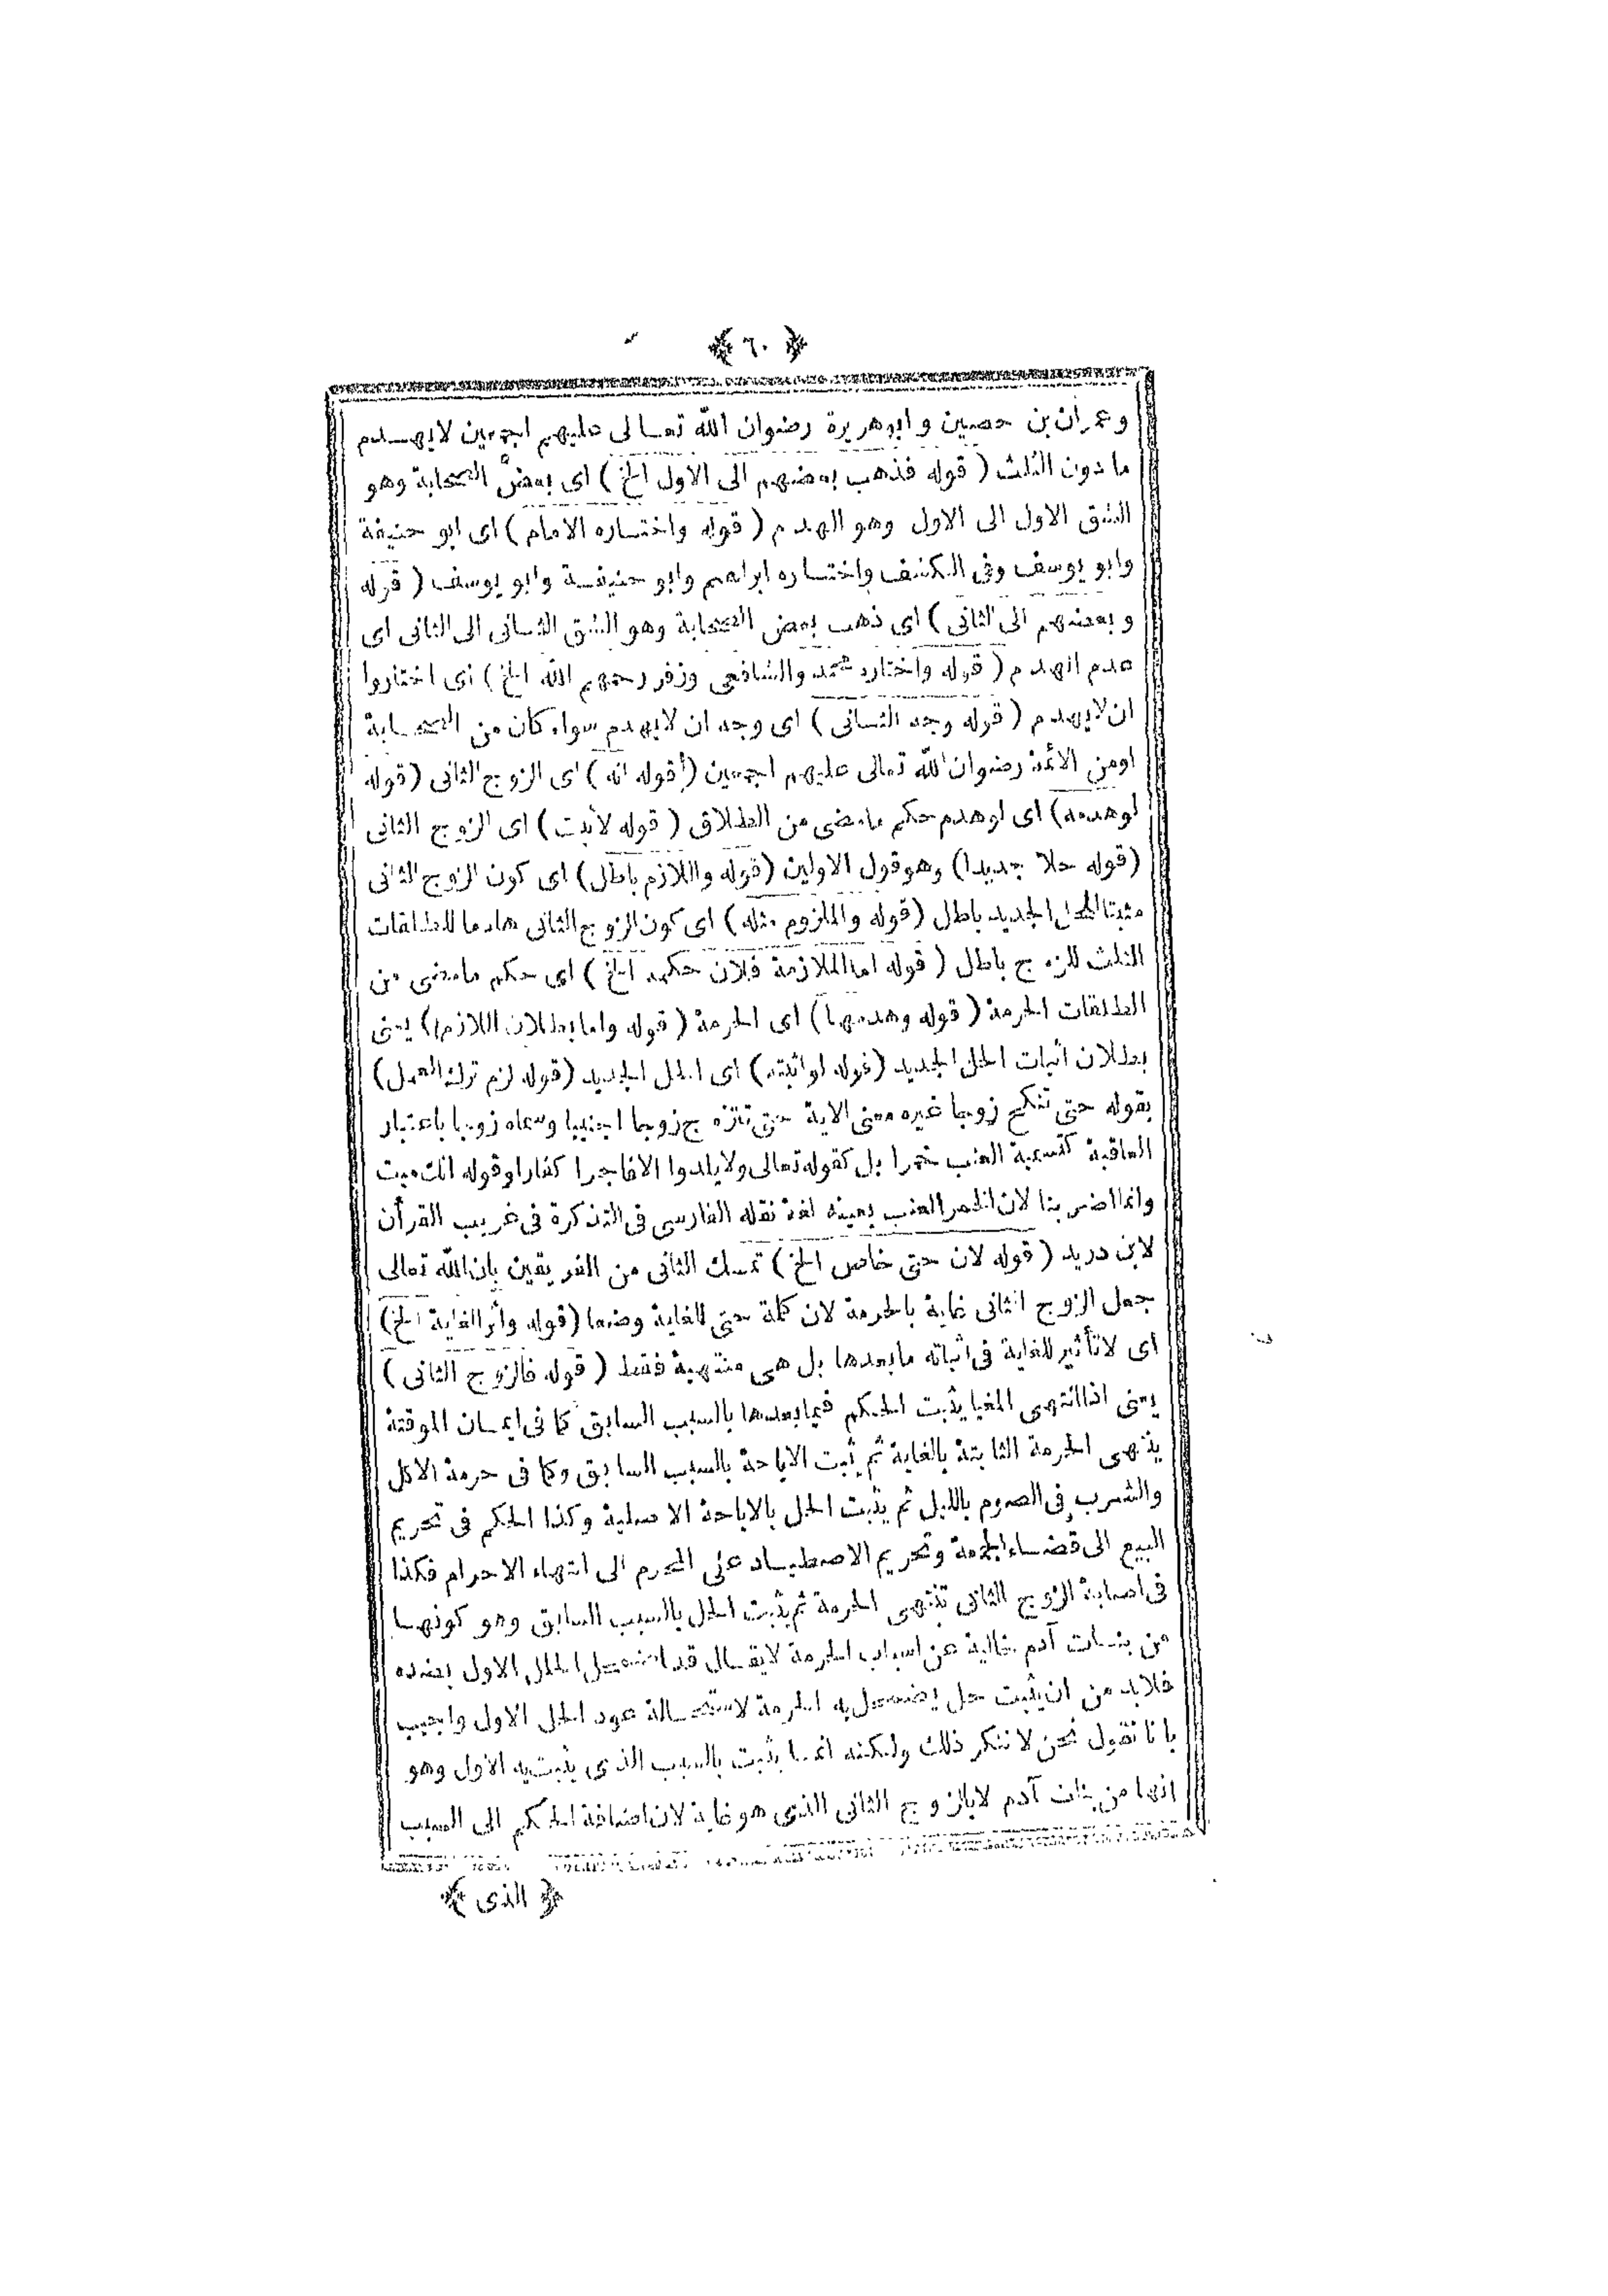 ﴿ ٦٠ ﴾
وعمران بن حصين وابوهريرة رضوان الله تعالى عليهم اجمعين لايهدم
ما دون الثلث ( قوله فذهب بعضهم الى الاول الخ ) اى بعض الصحابة وهو
الشق الاول الى الاول وهو الهدم ( قوله واختاره الامام ) اى ابو حنيفة
وابو يوسف وفى الكشف واختاره ابراهيم وابو حنيفة وابو يوسف ( قوله
وبعضهم الى الثانى ) اى ذهب بعض الصحابة وهو الشق الثانى الى الثانى اى
عدم الهدم ( قوله واختاره محمد والشافعى وزفر رحمهم الله الخ ) اى اختاروا
ان لايهدم ( قوله وجه الثانى ) اى وجه ان لايهدم سواء كان من الصحابة
اومن الائمة رضوان الله تعالى عليهم اجمعين (قوله انه ) اى الزوج الثانى (قوله
لوهدمه) اى لوهدم حكم مامضى من الطلاق ( قوله لاثبت ) اى الزوج الثانى
(قوله حلا جديدا) وهوقول الاولين (قوله واللازم باطل) اى كون الزوج الثانى
مثبتا للحل الجديد باطل (قوله والملزوم مثله) اى كون الزوج الثانى هادما للطلقات
الثلث للزوج باطل ( قوله اما الملازمة فلان حكمه الخ ) اى حكم مامضى من
الطلقات الحرمة ( قوله وهدمها ) اى الحرمة ( قوله واما بطلان اللازم) يعنى
بطلان اثبات الحل الجديد (قوله لواثبته) اى الحل الجديد (قوله لزم ترك العمل)
بقوله حتى تنكح زوجا غيره معنى الاية حتى تتزوج زوجا اجنبيا وسماه زوجا باعتبار
العاقبة كتسمية العنب خمرا بل كقوله تعالى ولايلدوا الافاجرا كفارا وقوله انك ميت
وانما اضربنا لان الخمر العنب بعينه لغة نقله الفارسى فى التذكرة فى غريب القرأن
لابن دريد ( قوله لان حتى خاص الخ ) تمسك الثانى من الفريقين بان الله تعالى
جعل الزوج الثانى غاية بالحرمة لان كلمة حتى للغاية وضعا (قوله واثر الغاية الخ)
اى لاتأثير للغاية فى اثباته مابعدها بل هى منتهية فقط ( قوله فالزوج الثانى )
يعنى اذا انتهى المغيا يثبت الحكم فيما بعدها بالسبب السابق كما فى ايمان الموقتة
ينتهى الحرمة الثابتة بالغاية ثم يثبت الاباحة بالسبب السابق وكما فى حرمة الاكل
والشرب فى الصوم بالليل ثم يثبت الحل بالاباحة الاصلية وكذا الحكم فى تحريم
البيع الى قضاء الجمعة وتحريم الاصطياد على المحرم الى انتهاء الاحرام فكذا
فى اصابة الزوج الثانى تنتهى الحرمة ثم يثبت الحل بالسبب السابق وهو كونها
من بنات آدم خالية عن اسباب الحرمة لايقال قد اضمحل الحل الاول بضده
فلابد من ان يثبت حل يضمحل به الحرمة لاستحالة عود الحل الاول واجيب
بانا نقول نحن لا ننكر ذلك ولكنه انما يثبت بالسبب الذى يثبت به الاول وهو
انها من بنات آدم لابالزوج الثانى الذى هو غاية لان اضافة الحكم الى السبب
﴿ الذى ﴾